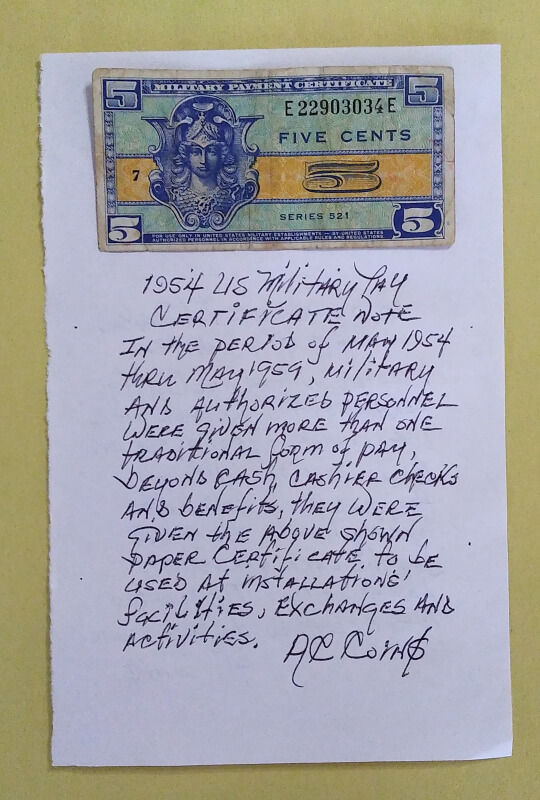 5 MILITARY PAYMENT CERTIFICATE 5
E22903034E
FIVE CENTS
7 5
SERIES 521
5 5
FOR USE ONLY IN UNITED STATES MILITARY ESTABLISHMENTS — BY UNITED STATES
AUTHORIZED PERSONNEL IN ACCORDANCE WITH APPLICABLE RULES AND REGULATIONS.
1954 US Military Pay
CERTIFICATE NOTE
IN the PERIOD of MAY 1954
thru MAY 1959, MILITARY
AND AUTHORIZED PERSONNEL
WERE GIVEN MORE THAN ONE
TRADITIONAL FORM of PAY,
BEYOND CASH, CASHIER CHECKS
AND benefits, they WERE
GIVEN the Above shown
PAPER CERTIFICATE to be
USED At INSTALLATIONS'
facilities, EXCHANGES AND
Activities. AC Coin$